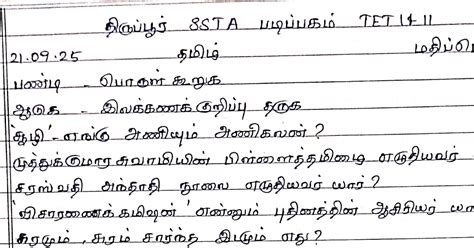 திருப்பூர் SSTA படிப்பகம் TET I & II
21.09.25 தமிழ்
பண்டி - பொருள் கூறுக
ஆடுக - இலக்கணக்குறிப்பு தருக
'சூழி' - எங்கு அணியும் அணிகலன்?
முத்துக்குமார சுவாமியின் பிள்ளைத்தமிழை எழுதியவர்
சரஸ்வதி அந்தாதி நூலை எழுதியவர் யார்?
'விசாரணைக் கமிஷன்' என்னும் புதினத்தின் ஆசிரியர் யா
சுரமும், சுரம் சார்ந்த இடமும் எது?